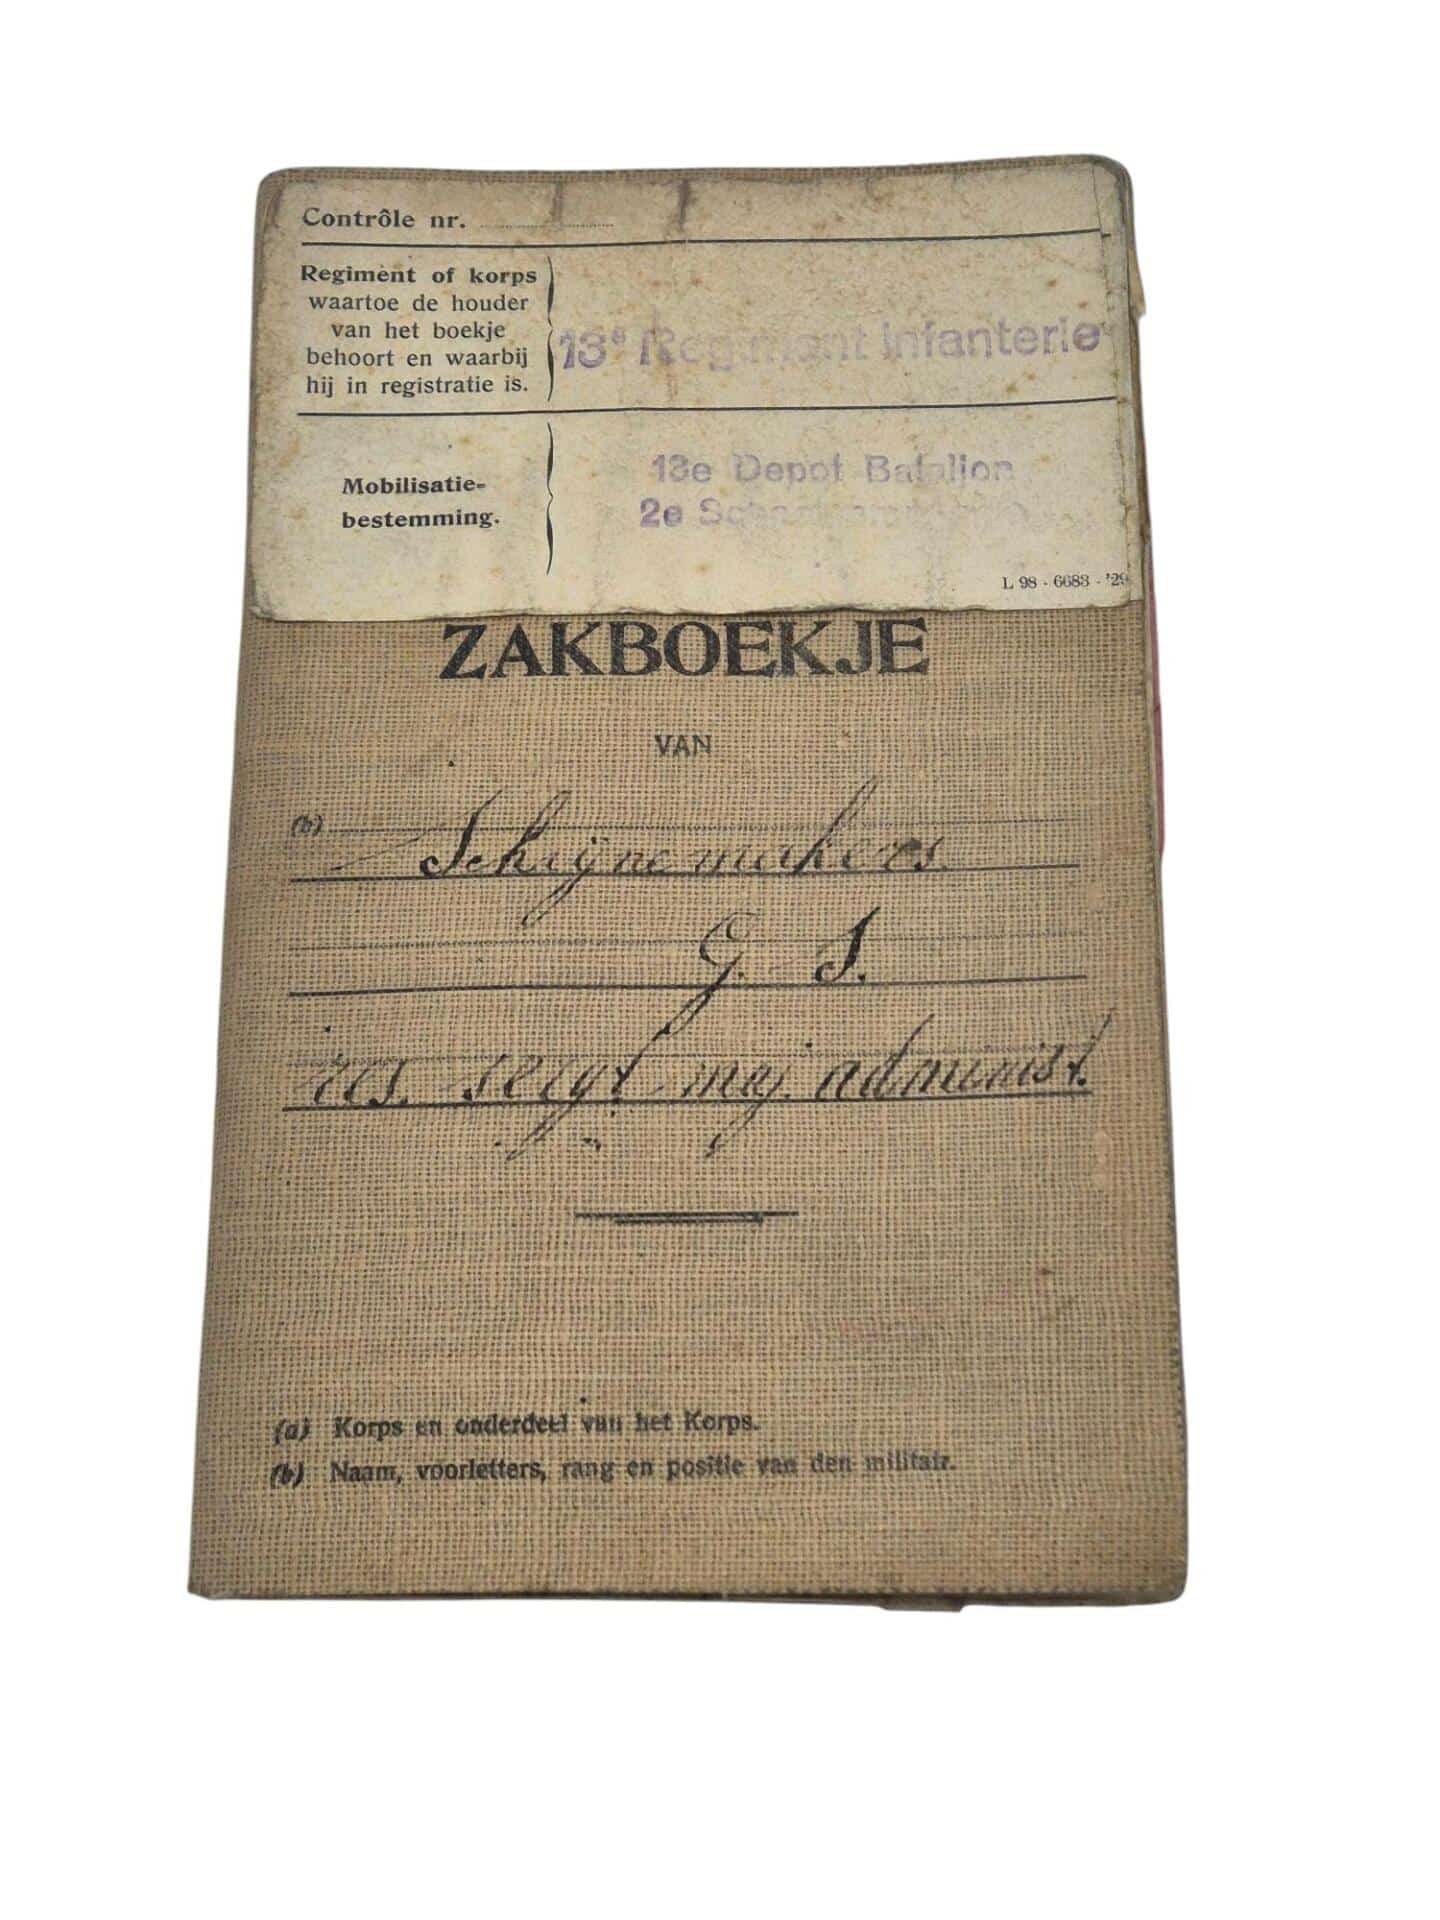 Contrôle nr.
Regiment of korps
waartoe de houder
van het boekje
behoort en waarbij
hij in registratie is.
13e Regiment Infanterie
Mobilisatie-
bestemming.
13e Depot Bataljon
2e
L 98 - 6683 - '29
ZAKBOEKJE
VAN
(b)
Schijnemakers.
G. J.
res. sergt maj. administ.
(a) Korps en onderdeel van het Korps.
(b) Naam, voorletters, rang en positie van den militair.